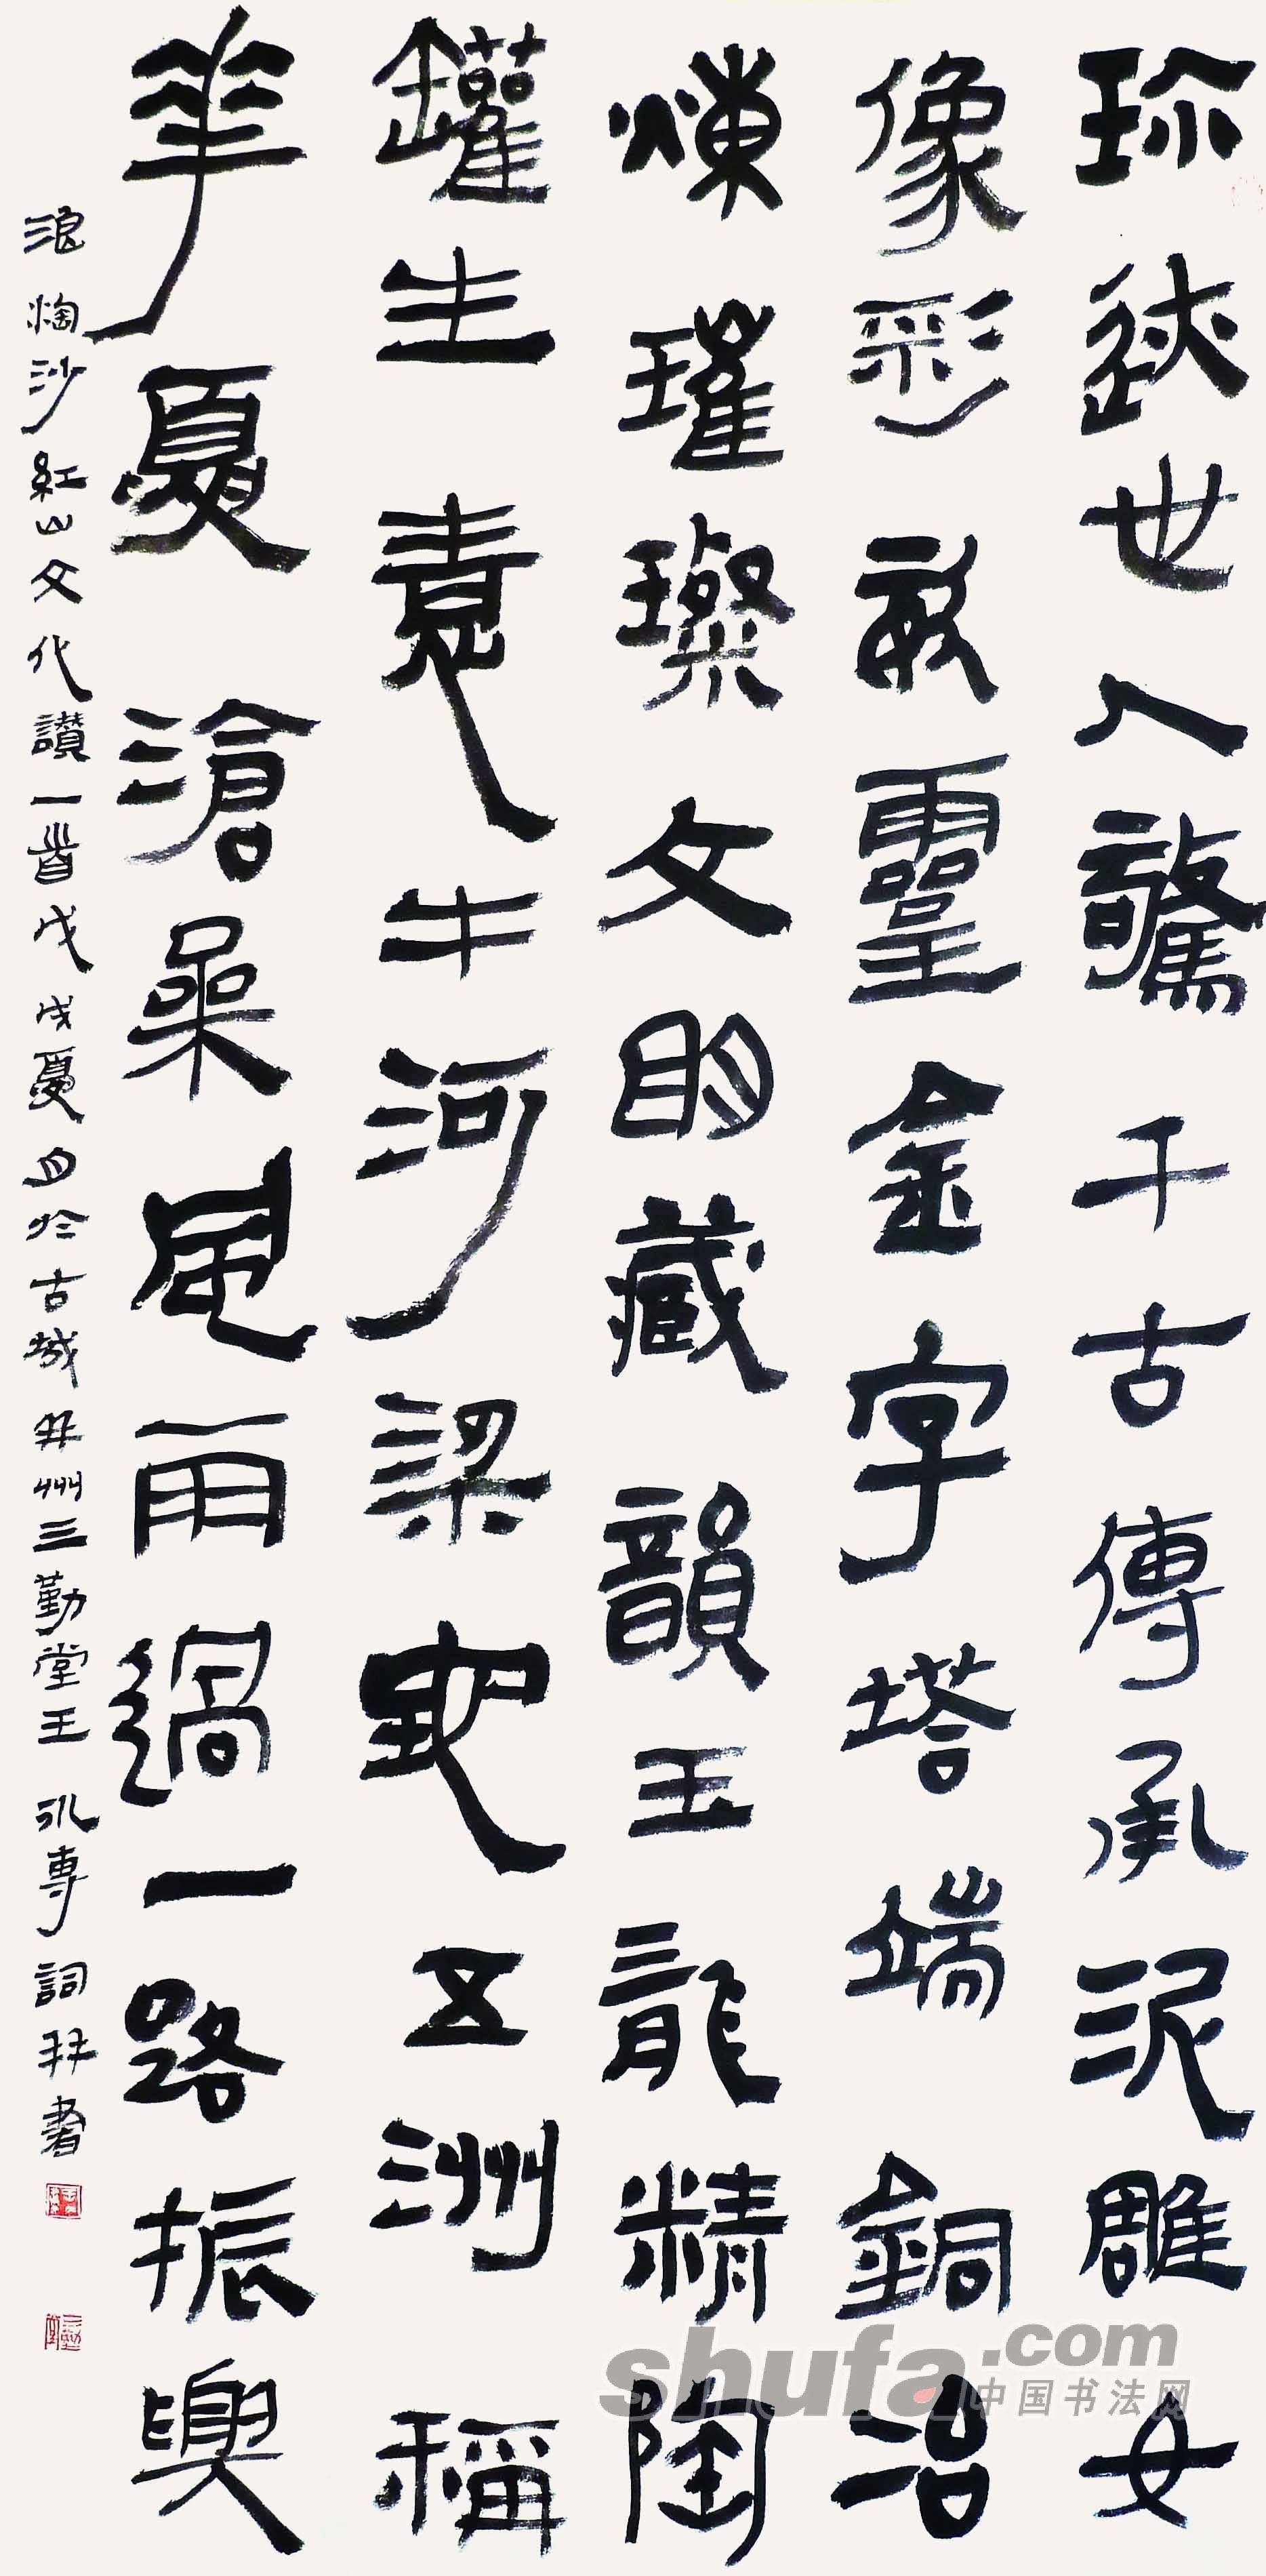 珎迭世人驚千古傳承泥雕女
像彩放靈金字塔端銅冶
煉璀璨文明藏韻玉龍精陶
罐生意牛河梁地五洲稱
華夏滄桑風雨過一路振興
浪淘沙紅山文化讚一首戊戌夏月於古城井州三勤堂王永專詞林書
shufa.com
中国书法网